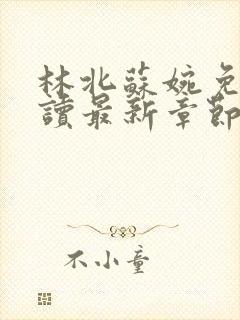 林北蘇婉免
讀最新章節
不小童